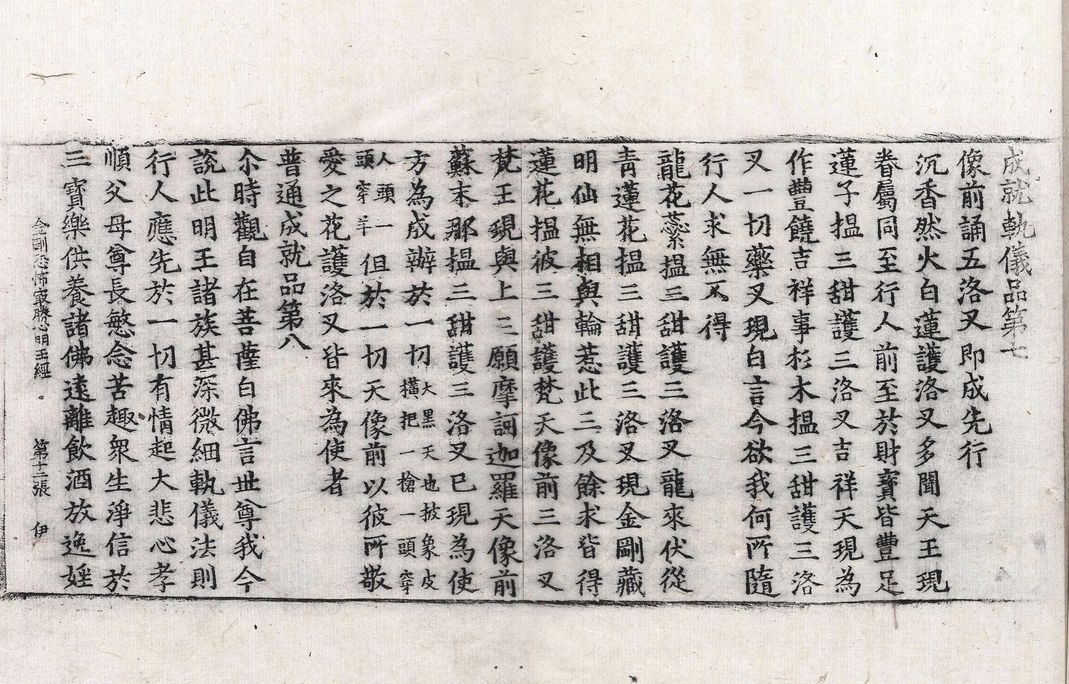 成就軌儀品第七
像前誦五洛叉即成先行
沉香然火白蓮護洛叉多聞天王現
眷屬同至行人前至於財寶皆豐足
蓮子搵三甜護三洛叉吉祥天現為
作豐饒吉祥事杉木搵三甜護三洛
叉一切藥叉現白言今欲我何所隨
行人求無不得
龍花蘂搵三甜護三洛叉龍來伏從
青蓮花搵三甜護三洛叉現金剛藏
明仙無相與輪惹此三及餘求皆得
蓮花搵彼三甜護梵天像前三洛叉
梵王現與上三願摩訶迦羅天像前
蘇末那搵三甜護三洛叉已現為使
方為成辦於一切大黑天也披象皮橫把一槍一頭穿
人頭一頭穿羊但於一切天像前以彼所敬
愛之花護洛叉皆來為使者
普通成就品第八
尒時觀自在菩薩白佛言世尊我今
說此明王諸族甚深微細軌儀法則
行人應先於一切有情起大悲心孝
順父母尊長愍念苦趣衆生淨信於
三寶樂供養諸佛遠離飲酒放逸婬
金剛恐怖冣勝心明王經 第十二張 伊